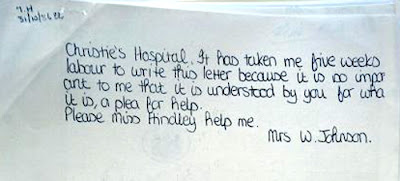 31/10/86
Christie's Hospital. It has taken me five weeks
labour to write this letter because it is so impor
ant to me that it is understood by you for wha
it is, a plea for help.
Please miss Hindley help me.
Mrs W. Johnson.